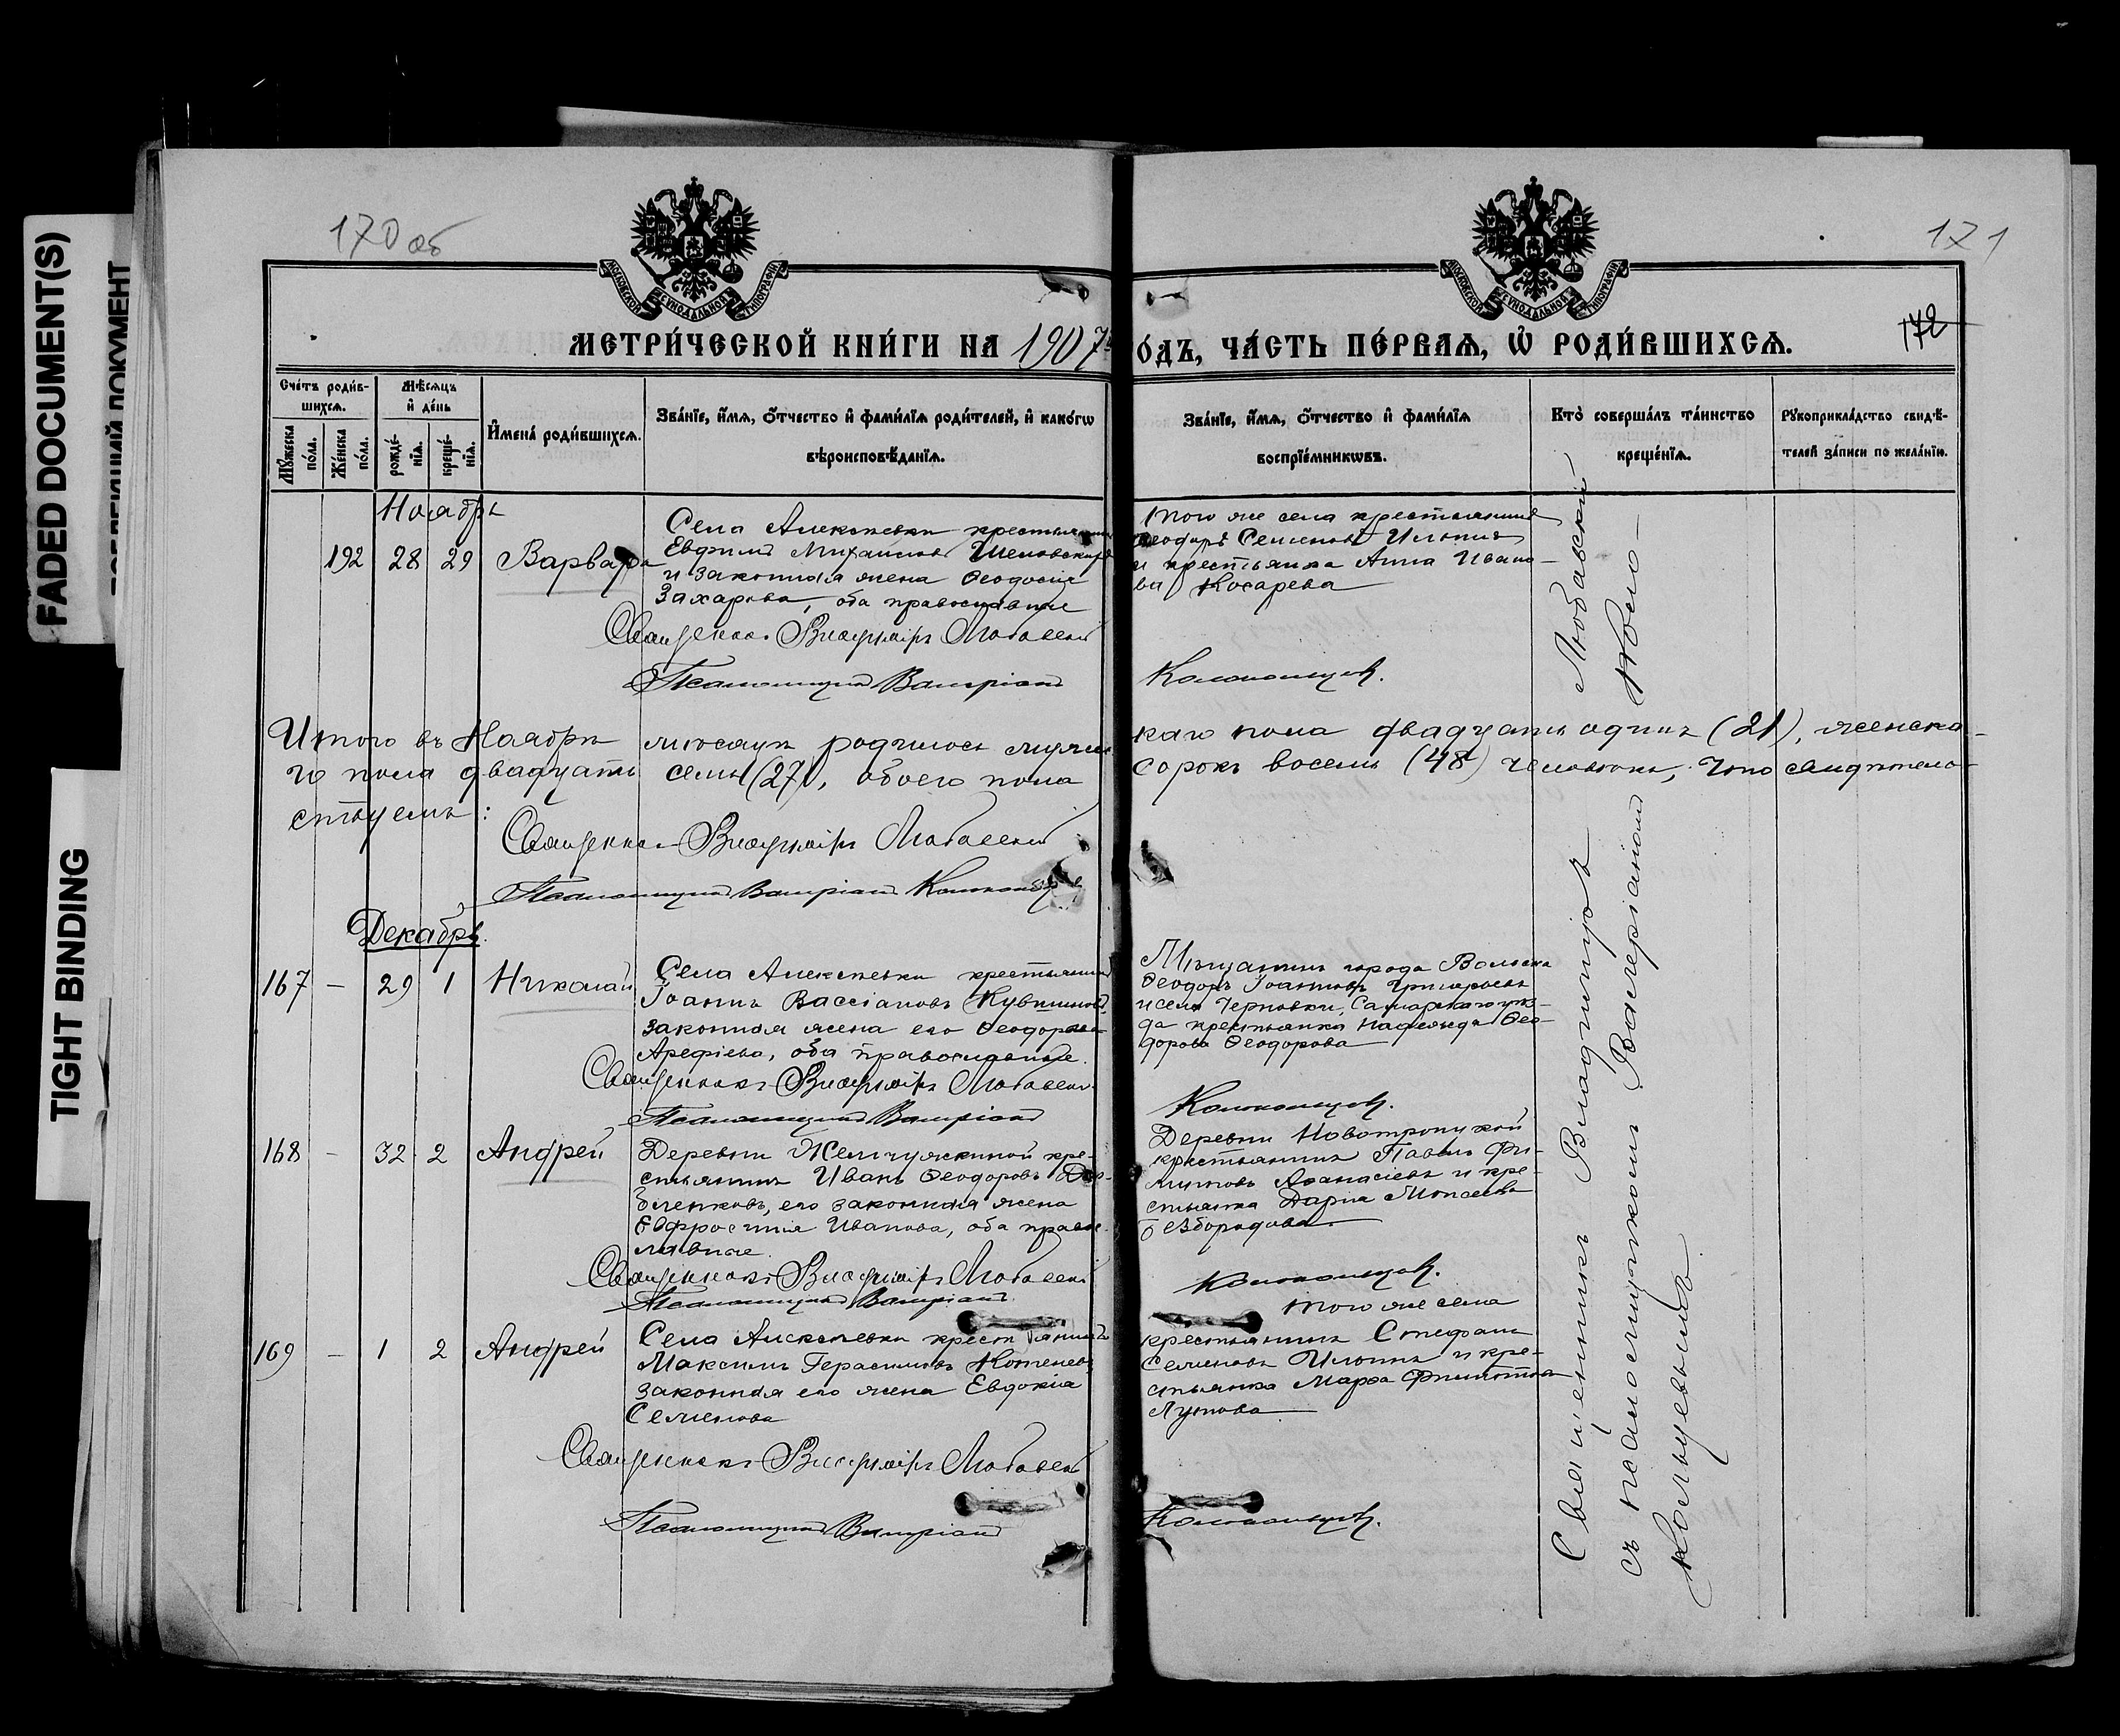 FADED DOCUMENT(S)
TIGHT BINDING
170 об
171
172
МЕТРИ́ЧЕСКОЙ КНИ́ГИ НА 1907 г
О́ДЪ, ЧА́СТЬ ПЕ́РВАѦ, Ѡ҆ РОДИ́ВШИХСѦ.
Сче́тъ роди́в-
шихсѧ.
Мѣ́сѧцъ
и҆ де́нь
Мꙋ́жеска по́ла.
Же́нска по́ла.
рожде́-
нїѧ.
креще́-
нїѧ.
И҆мена̀ роди́вшихсѧ.
Зва́нїе, и҆́мѧ, ѻ҆́тчество и҆ фами́лїѧ роди́телей, и҆ како́гѡ
вѣроисповѣ́данїѧ.
Зва́нїе, и҆́мѧ, ѻ҆́тчество и҆ фами́лїѧ
воспрїе́мникѡвъ.
Кто̀ соверша́лъ та́инство
креще́нїѧ.
Рꙋкоприкла́дство свидѣ́-
телей за́писи по жела́нїю.
Ноябрь
192 28 29 Варвара
Села Алексеевки крестьянинъ
Евфимій Михаиловъ
и законная жена Ѳеодосія
Захарова, оба православные
Священникъ Владиміръ Любавскій
Псаломщикъ Валеріанъ
того же села крестьянинъ
Ѳеодоръ Семеновъ Ильинъ
и крестьянка Анна Ивано-
ва Косарева
Колокольцевъ.
Итого въ Ноябрѣ мѣсяцѣ родилось мужес
каго пола двадцать одинъ (21), женска-
го пола двадцать семь (27), обоего пола
сорокъ восемь (48) человѣкъ, что свидѣтель-
ствуемъ:
Священникъ Владиміръ Любавскій
Псаломщикъ Валеріанъ
Декабрь.
167 – 29 1 Николай
Села Алексеевки крестьянинъ
Іоаннъ Вассіановъ Кувшиновъ,
законная жена его Ѳеодора
Арефіева, оба православные.
Священникъ Владиміръ Любавскій
Псаломщикъ Валеріанъ
Мѣщанинъ города Вольска
Ѳеодоръ Іоанновъ Григорьевъ
и села Черновки, Самарскаго уѣз-
да крестьянка Надежда Ѳео-
дорова Ѳеодорова
Колокольцевъ.
168 – 32 2 Андрей
Деревни Жемчужкиной кре-
стьянинъ Иванъ Ѳеодоровъ
бленковъ, его законная жена
Евфросинія Ивановна, оба право-
лавные.
Священникъ Владиміръ Любавскій
Псаломщикъ Валеріанъ
Деревни Новотроицкой
крестьянинъ Павелъ Фи-
липповъ Аѳанасіевъ и кре-
стьянка Дарія Моисеева
Безбородова
Колокольцевъ.
169 – 1 2 Андрей
Села Алексеевки крестьянинъ
Максимъ Герасимовъ Котеневъ,
законная его жена Евдокія
Семенова
Священникъ Владиміръ Любавскій
Псаломщикъ Валеріанъ
того же села
крестьянинъ Стефанъ
Семеновъ Ильинъ и кре-
стьянка Марѳа
Лупова
Колокольцевъ.
Священникъ Владиміръ Любавскій
съ псаломщикомъ Валеріаномъ